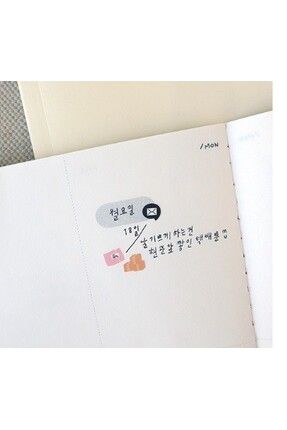 /MON
월요일
18일
날 기쁘게 하는건
현관앞 쌓인 택배들